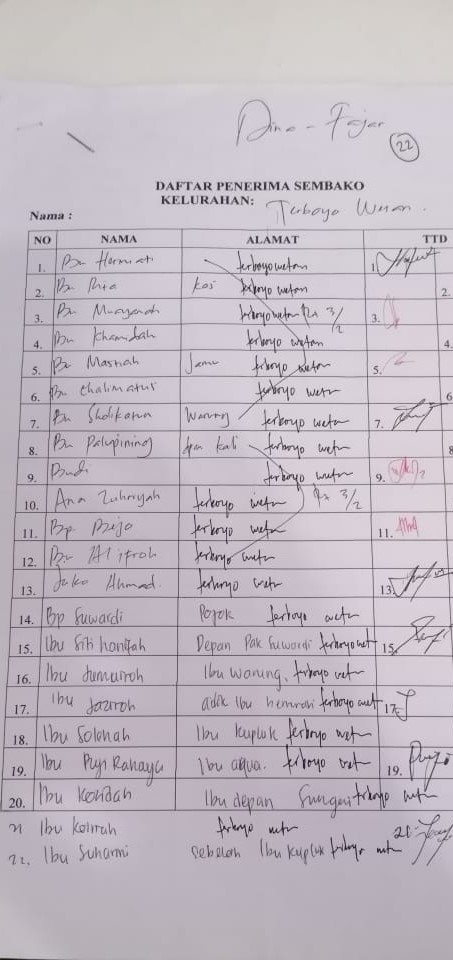 Dina - Fajar
22
DAFTAR PENERIMA SEMBAKO
KELURAHAN: Terboyo Wetan.
Nama :
NO NAMA ALAMAT TTD
1. Bu Herniati terboyo wetan 1.
2. Bu Rita kos terboyo wetan 2.
3. Bu terboyo wetan Rw 3/2 3.
4. Bu Khamidah terboyo wetan 4.
5. Bu Masnah Jamu terboyo wetan 5.
6. Bu Chalimatus terboyo wetan 6
7. Bu Sholikatun Warung terboyo wetan 7.
8. Bu kali terboyo wetan 8
9. Budi terboyo wetan 9.
10. Ana Zuhriyah terboyo wetan Rw 3/2
11. Bp Bejo terboyo wetan 11.
12. Bu Alifroh terboyo wetan
13. Joko Ahmad. terboyo wetan 13.
14. Bp Suwardi Pojok terboyo wetan
15. Ibu Siti hanifah Depan Pak Suwardi terboyo wet 15.
16. Ibu Jumairoh Ibu warung, terboyo wetan
17. Ibu Jazroh adik Ibu terboyo wet 17.
18. Ibu Solehah Ibu kupluk terboyo wetan
19. Ibu Puji Rahayu Ibu aqua. terboyo wetan 19.
20. Ibu Kolidah Ibu depan Sungai terboyo wetan
21 Ibu terboyo wetan 21.
22. Ibu Suharmi sebelah Ibu kupluk terboyo wetan